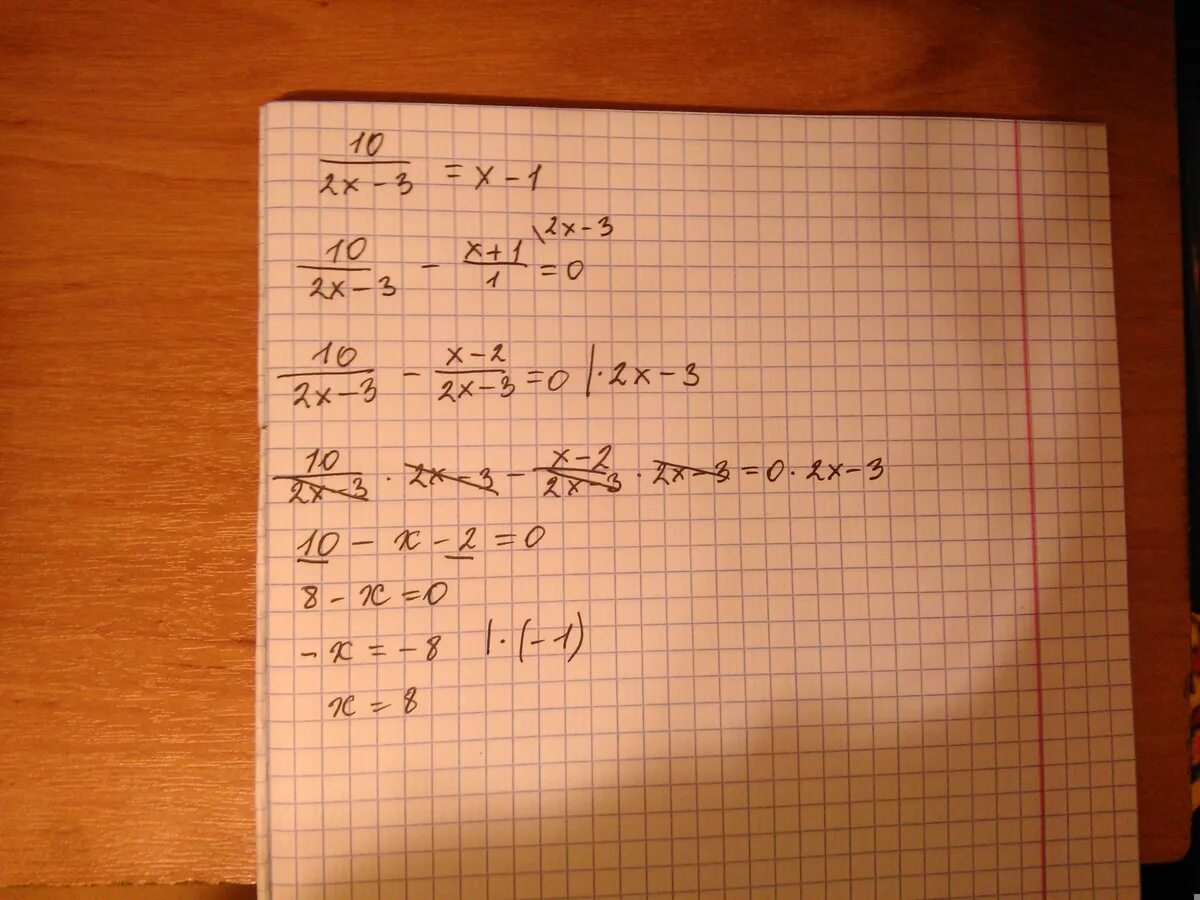 10/(2x-3) = x-1
10/(2x-3) - (x+1)/1 \2x-3 = 0
10/(2x-3) - (x-2)/(2x-3) = 0 |·2x-3
10/(2x-3) · 2x-3 - (x-2)/(2x-3) · 2x-3 = 0·2x-3
10 - x - 2 = 0
8 - x = 0
-x = -8 |·(-1)
x = 8